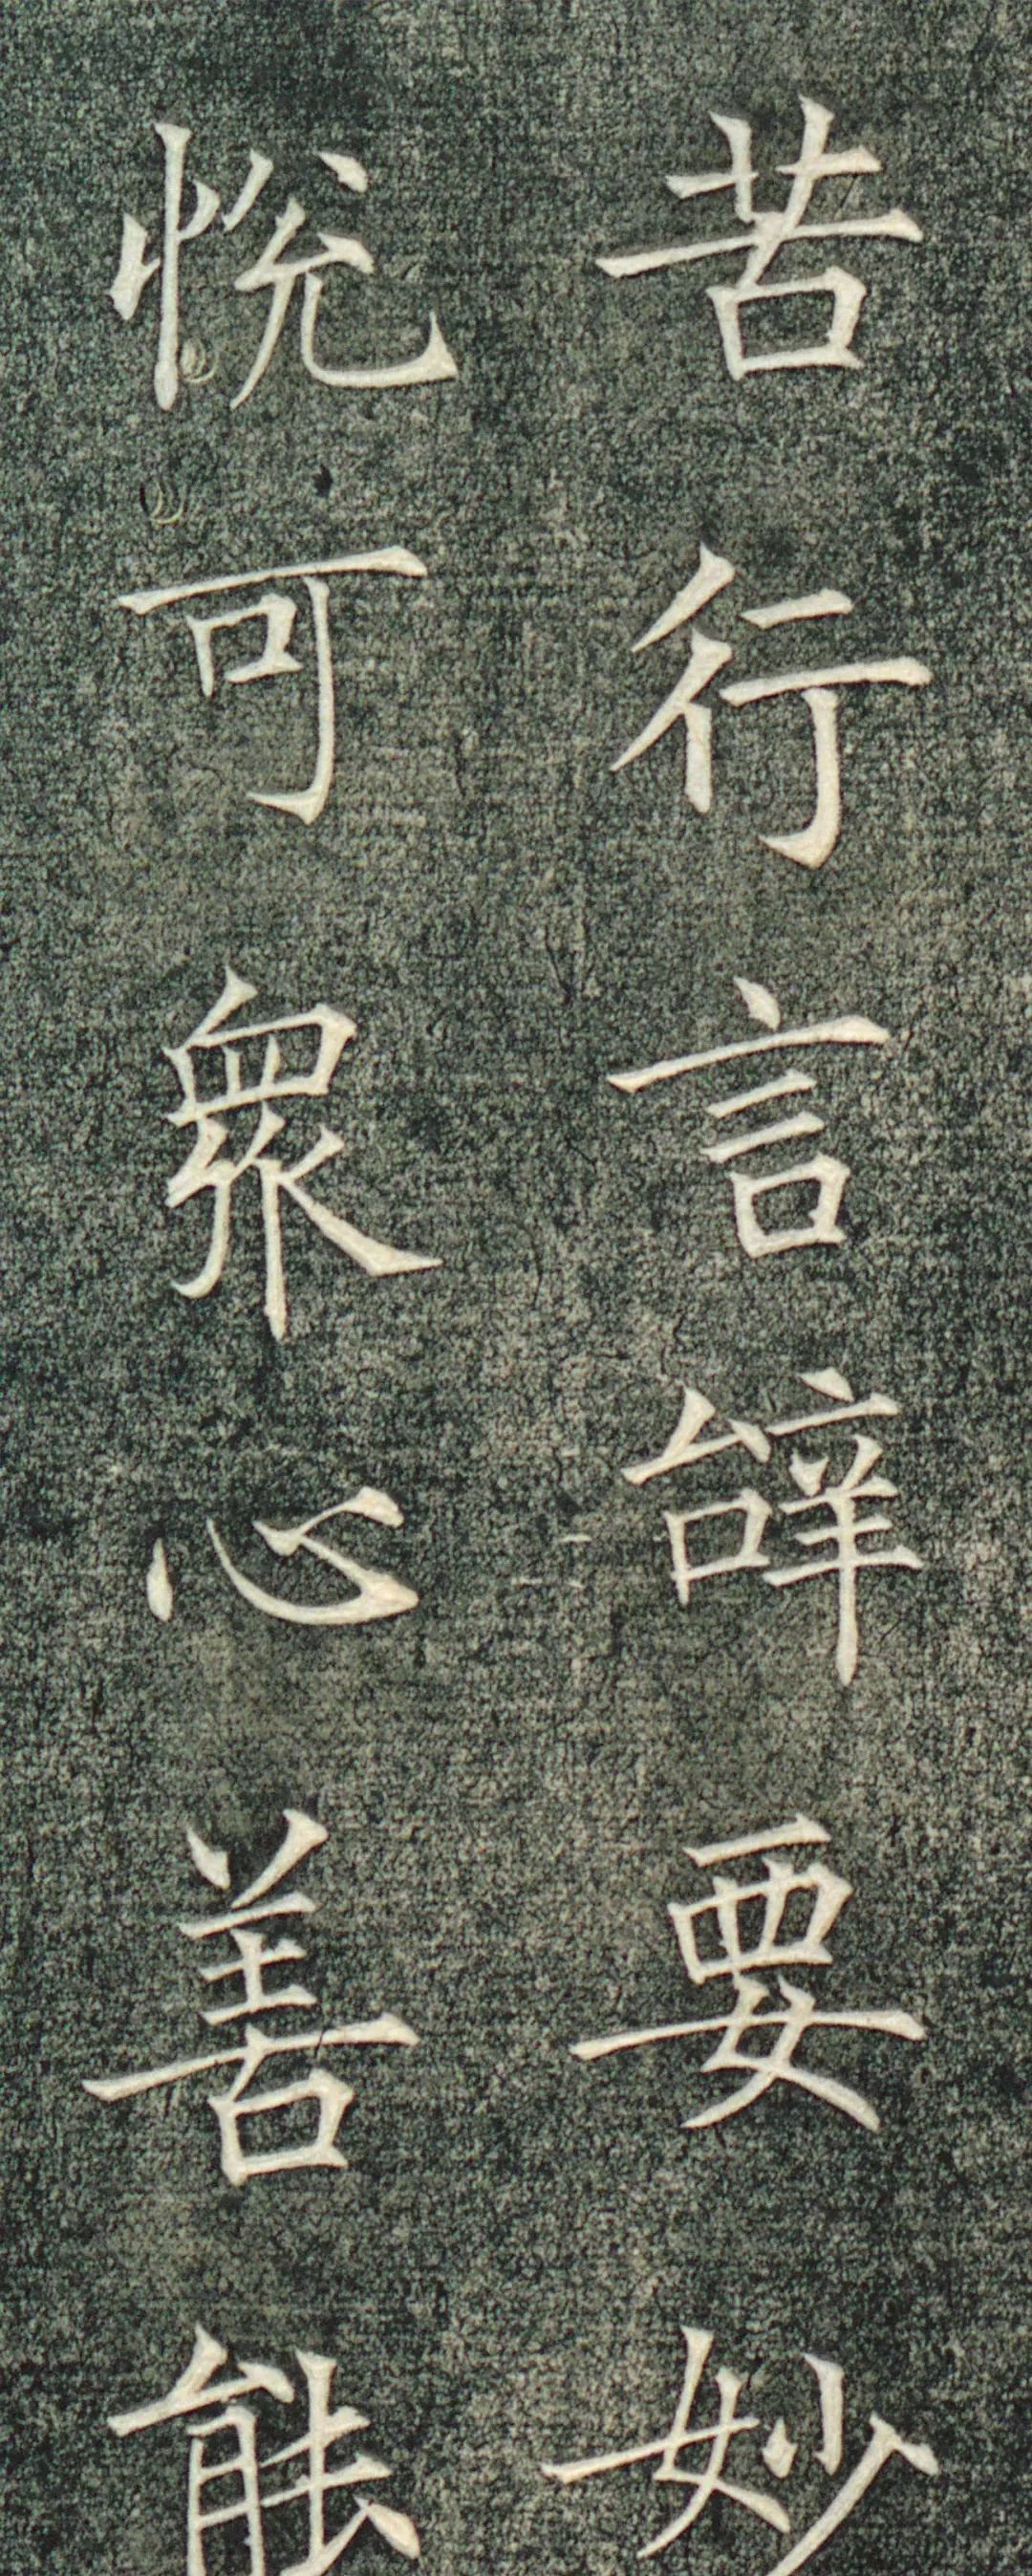 苦行言辝要妙
悅可衆心善能